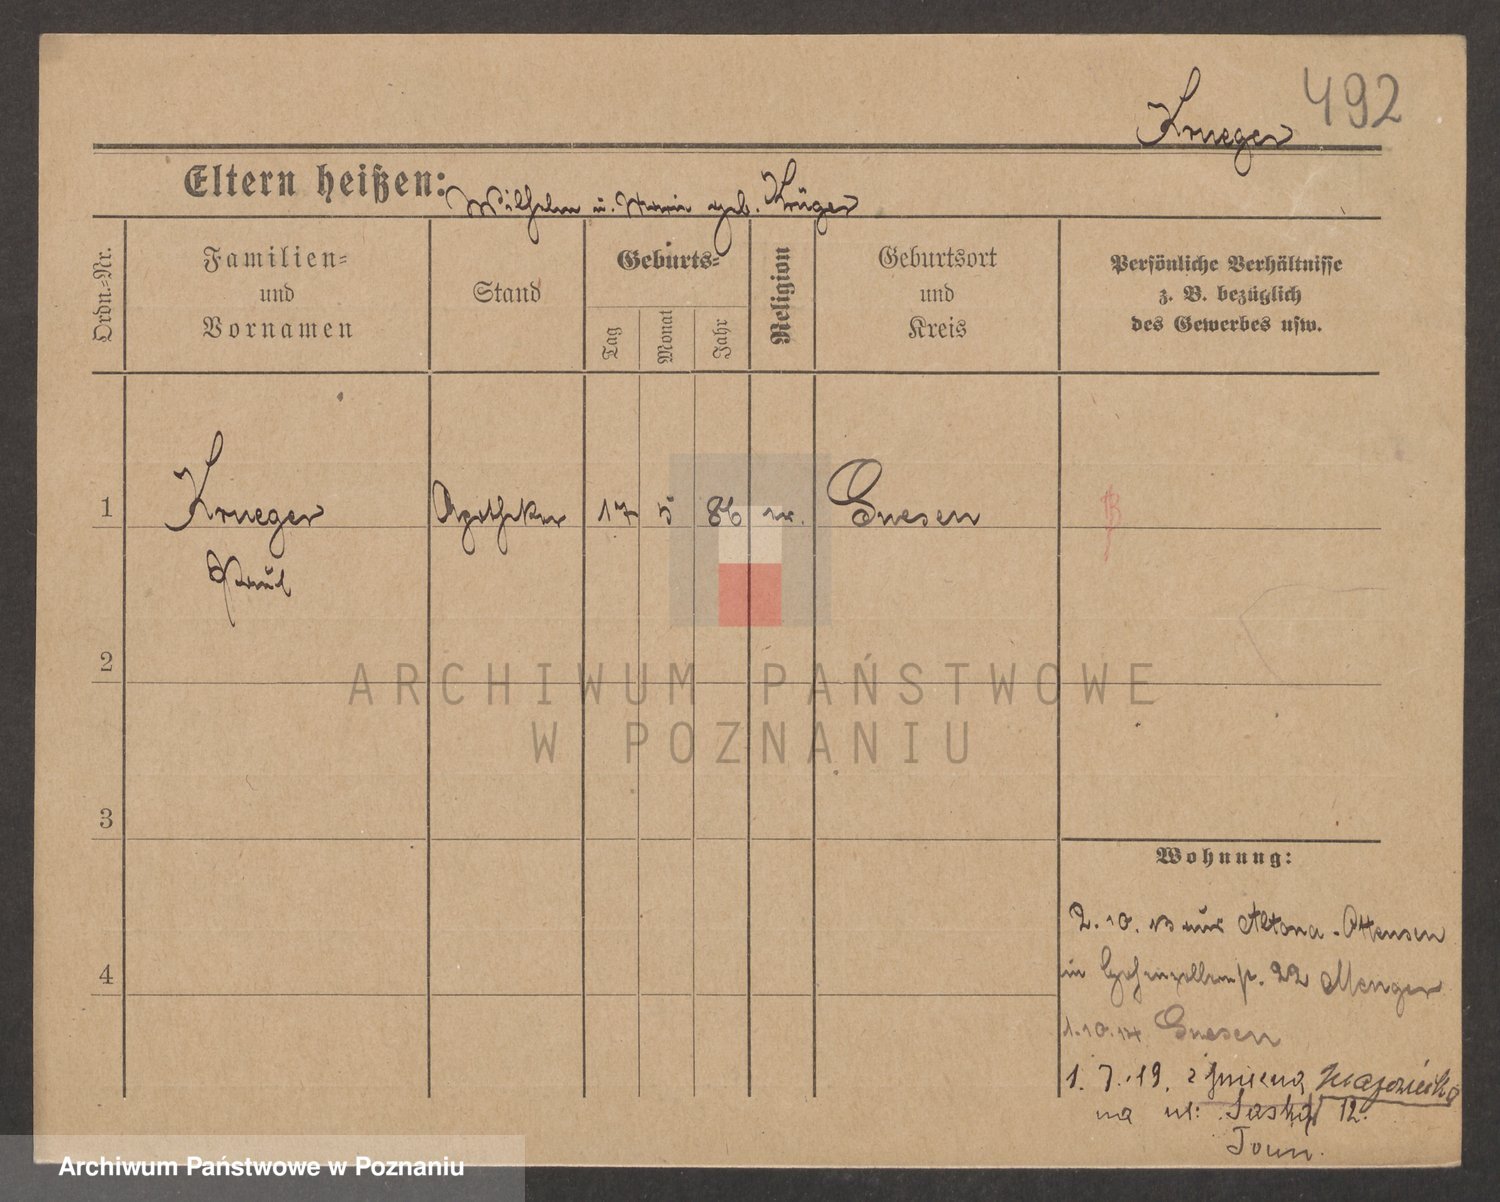 492
Krueger
Eltern heißen: Wilhelm u. Marie geb. Krüger
Ordn.-Nr.
Familien-
und
Vornamen
Stand
Geburts-
Tag
Monat
Jahr
Religion
Geburtsort
und
Kreis
Persönliche Verhältnisse
z. B. bezüglich
des Gewerbes usw.
1 Krueger Apotheker 17 5 86 ev. Gnesen
Paul
2
3
4
Wohnung:
2. 10. 13 aus Altona-Ottensen
in 22 Menger
1.10.14 Gnesen
1. 7. 19. z Gniezna
na ul: Saska 12.
ARCHIWUM PAŃSTWOWE
W POZNANIU
Archiwum Państwowe w Poznaniu